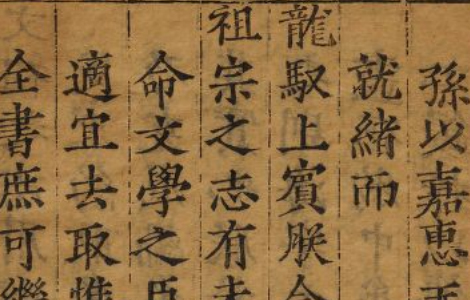 孫以嘉惠
就緒而
龍馭上賓朕
祖宗之志有未
命文學之臣
適宜去取惟
全書庶可繼